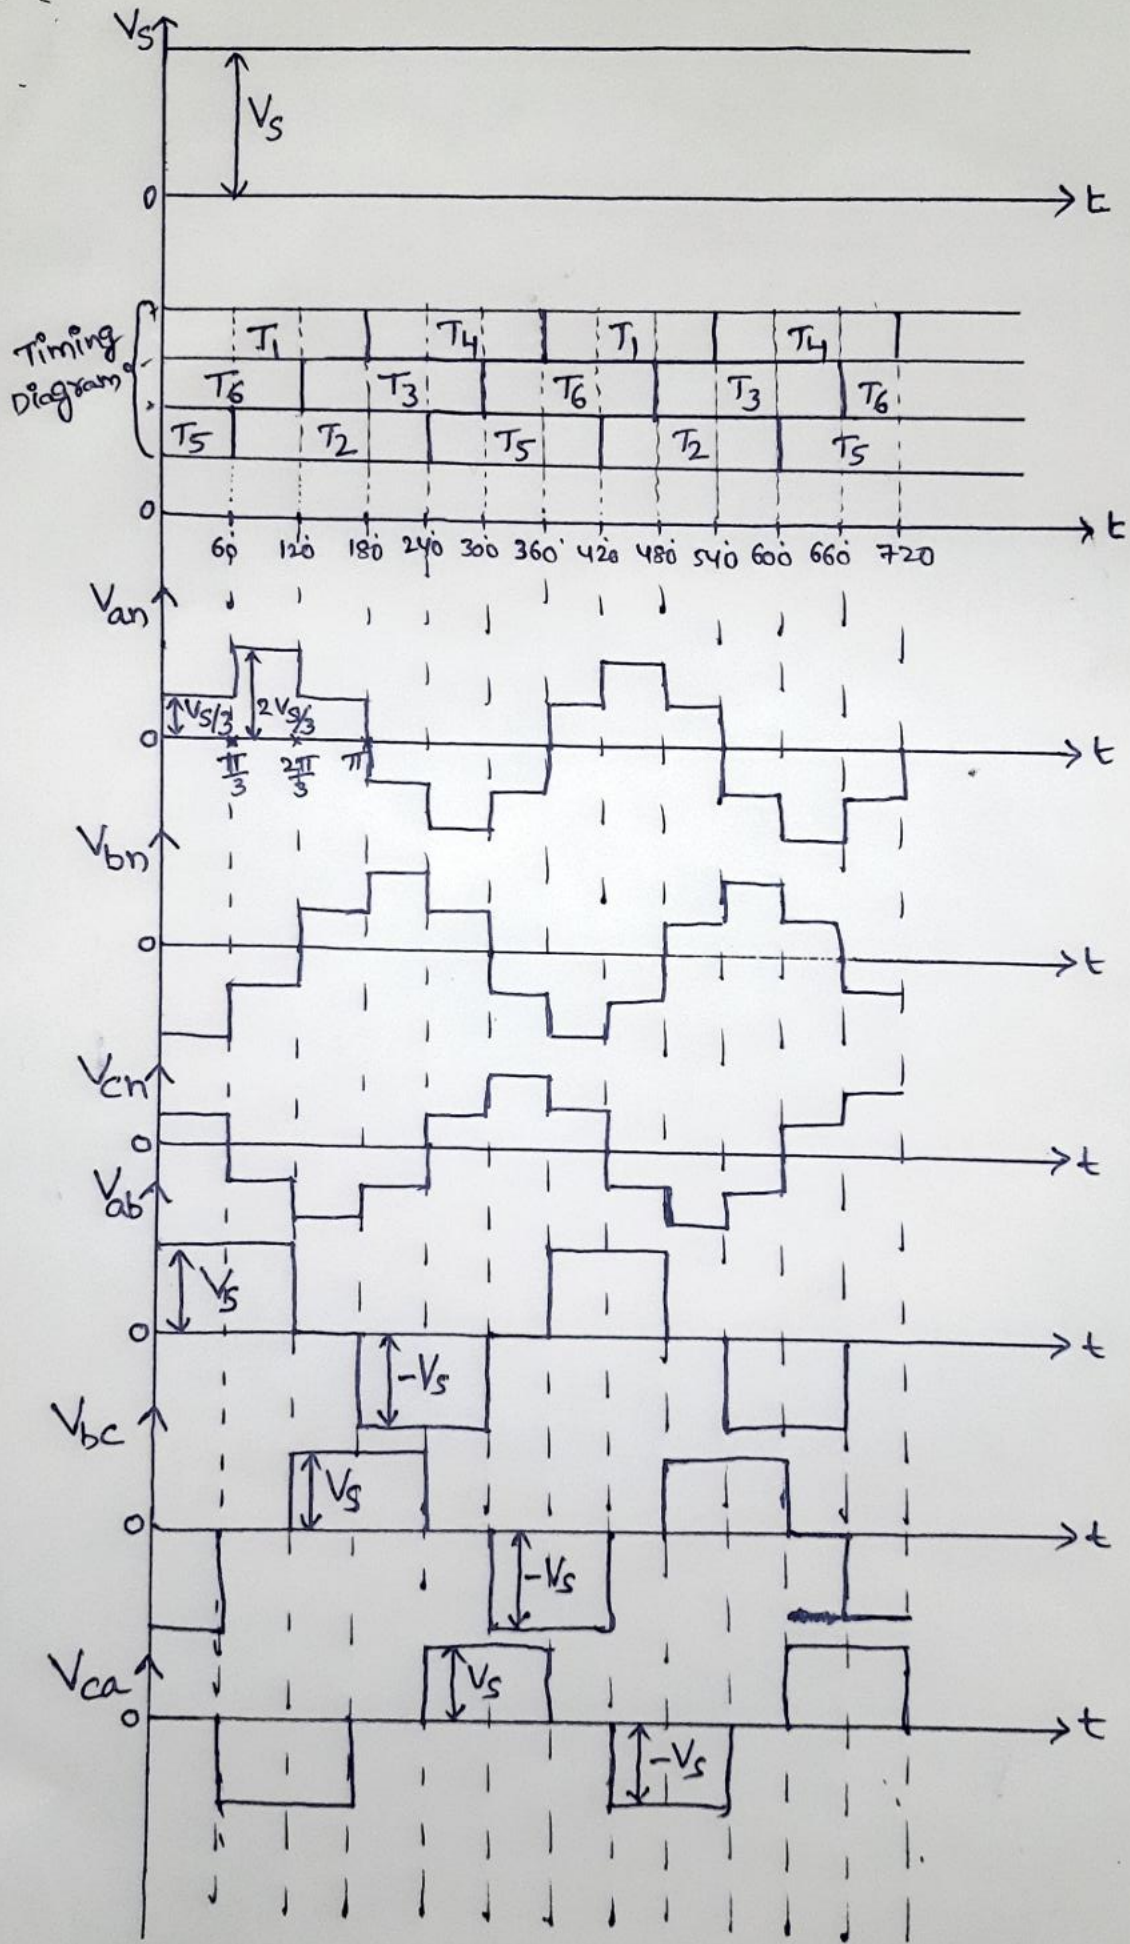 Vs
Vs
0 t
Timing Diagram
T1 T4 T1 T4
T6 T3 T6 T3 T6
T5 T2 T5 T2 T5
0 t
60° 120° 180° 240° 300° 360° 420° 480° 540° 600° 660° 720
Van
Vs/3 2Vs/3
0 t
π/3 2π/3 π
Vbn
0 t
Vcn
0 t
Vab
Vs
0 t
-Vs
Vbc
Vs
0 t
-Vs
Vca
Vs
0 t
-Vs